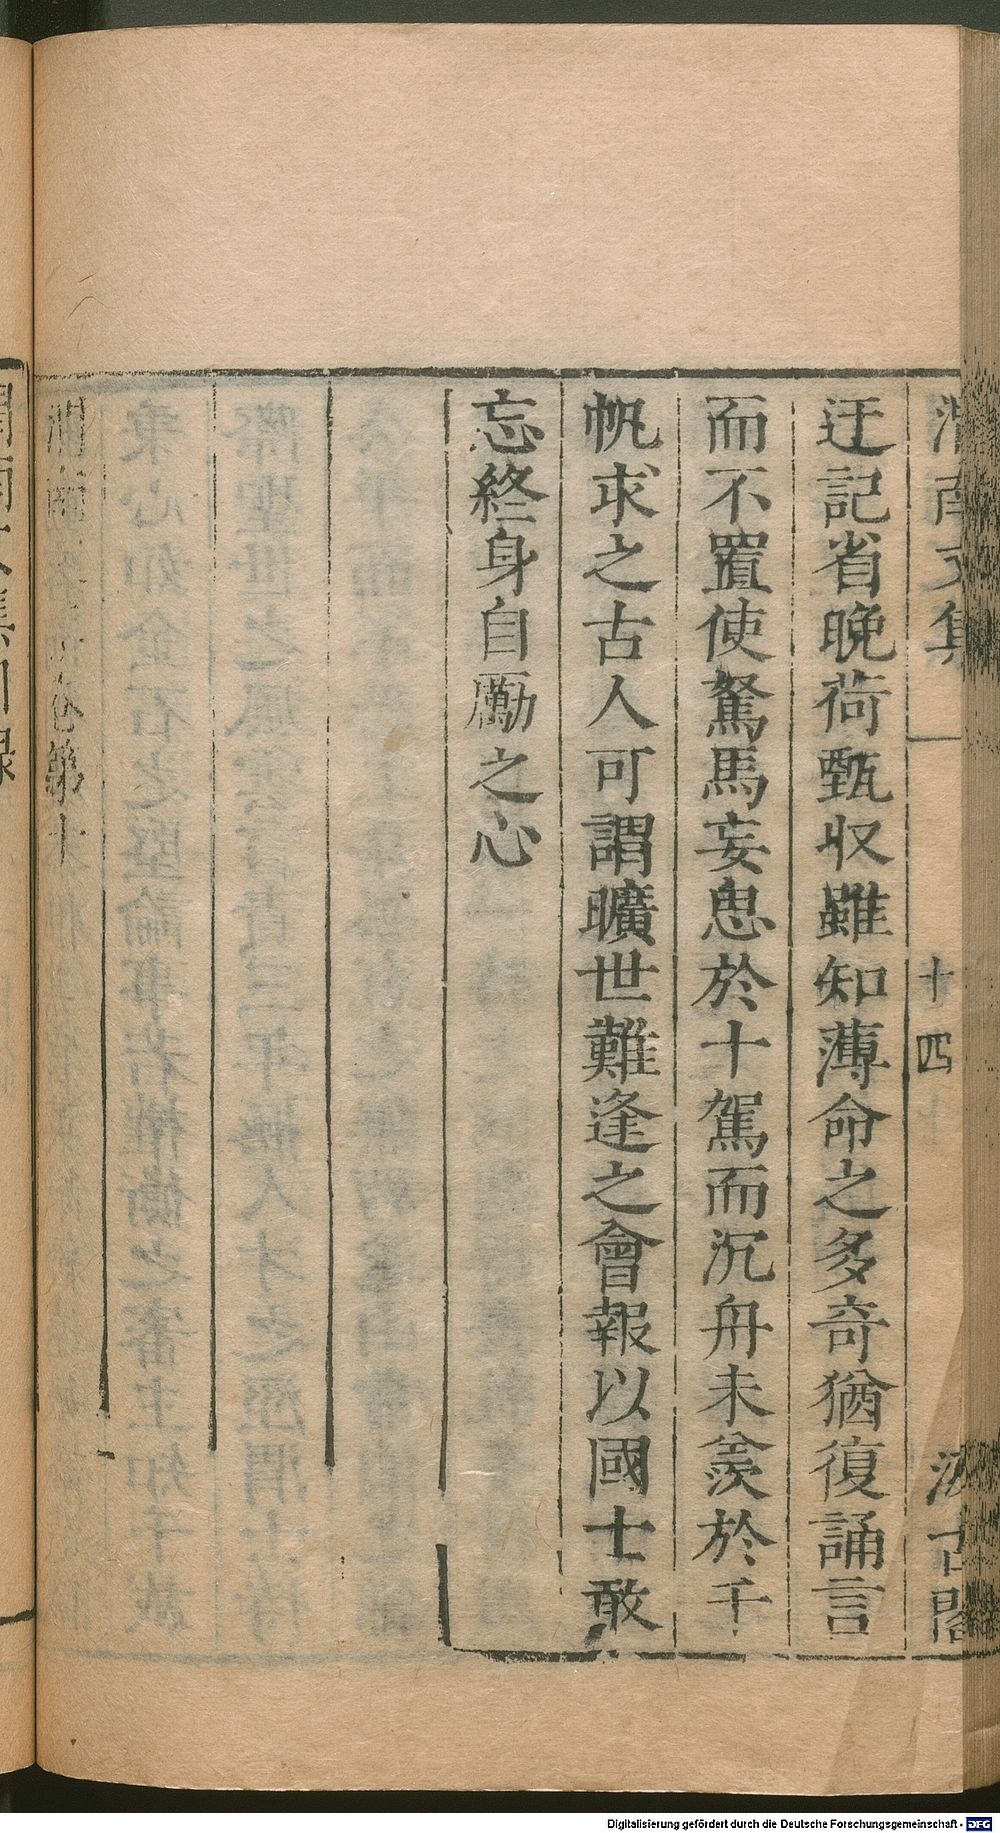 渭南文集
十四
汲古閣
迂記省晚荷甄収雖知薄命之多奇猶復誦言
而不置使駑馬妄思於十駕而沉舟未羨於千
帆求之古人可謂曠世難逢之會報以國士敢
忘終身自勵之心
渭南文集卷第十
Digitalisierung gefördert durch die Deutsche Forschungsgemeinschaft - DFG